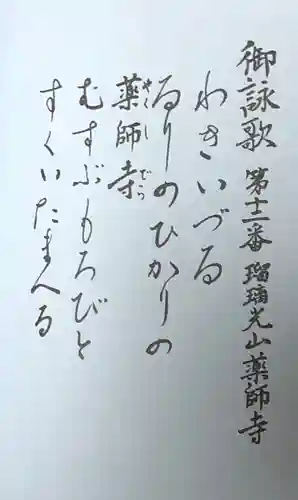 御詠歌 第十二番 瑠璃光山薬師寺
わきいづる
るりのひかりの
薬師寺
やくし でら
むすぶもろびと
すくいたまへる